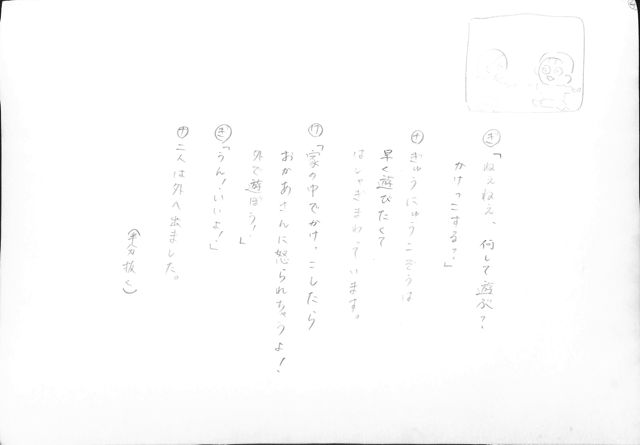 ぎ「ねえねえ、何して遊ぶ?
かけっこする?」
ナ ぎゅうにゅうこぞうは
早く遊びたくて
はしゃぎまわっています。
け「家の中でかけっこしたら
おかあさんに怒られちゃうよ!
外で遊ぼう!」
ぎ「うん!いいよ!」
ナ 二人は外へ出ました。
(半分抜く)